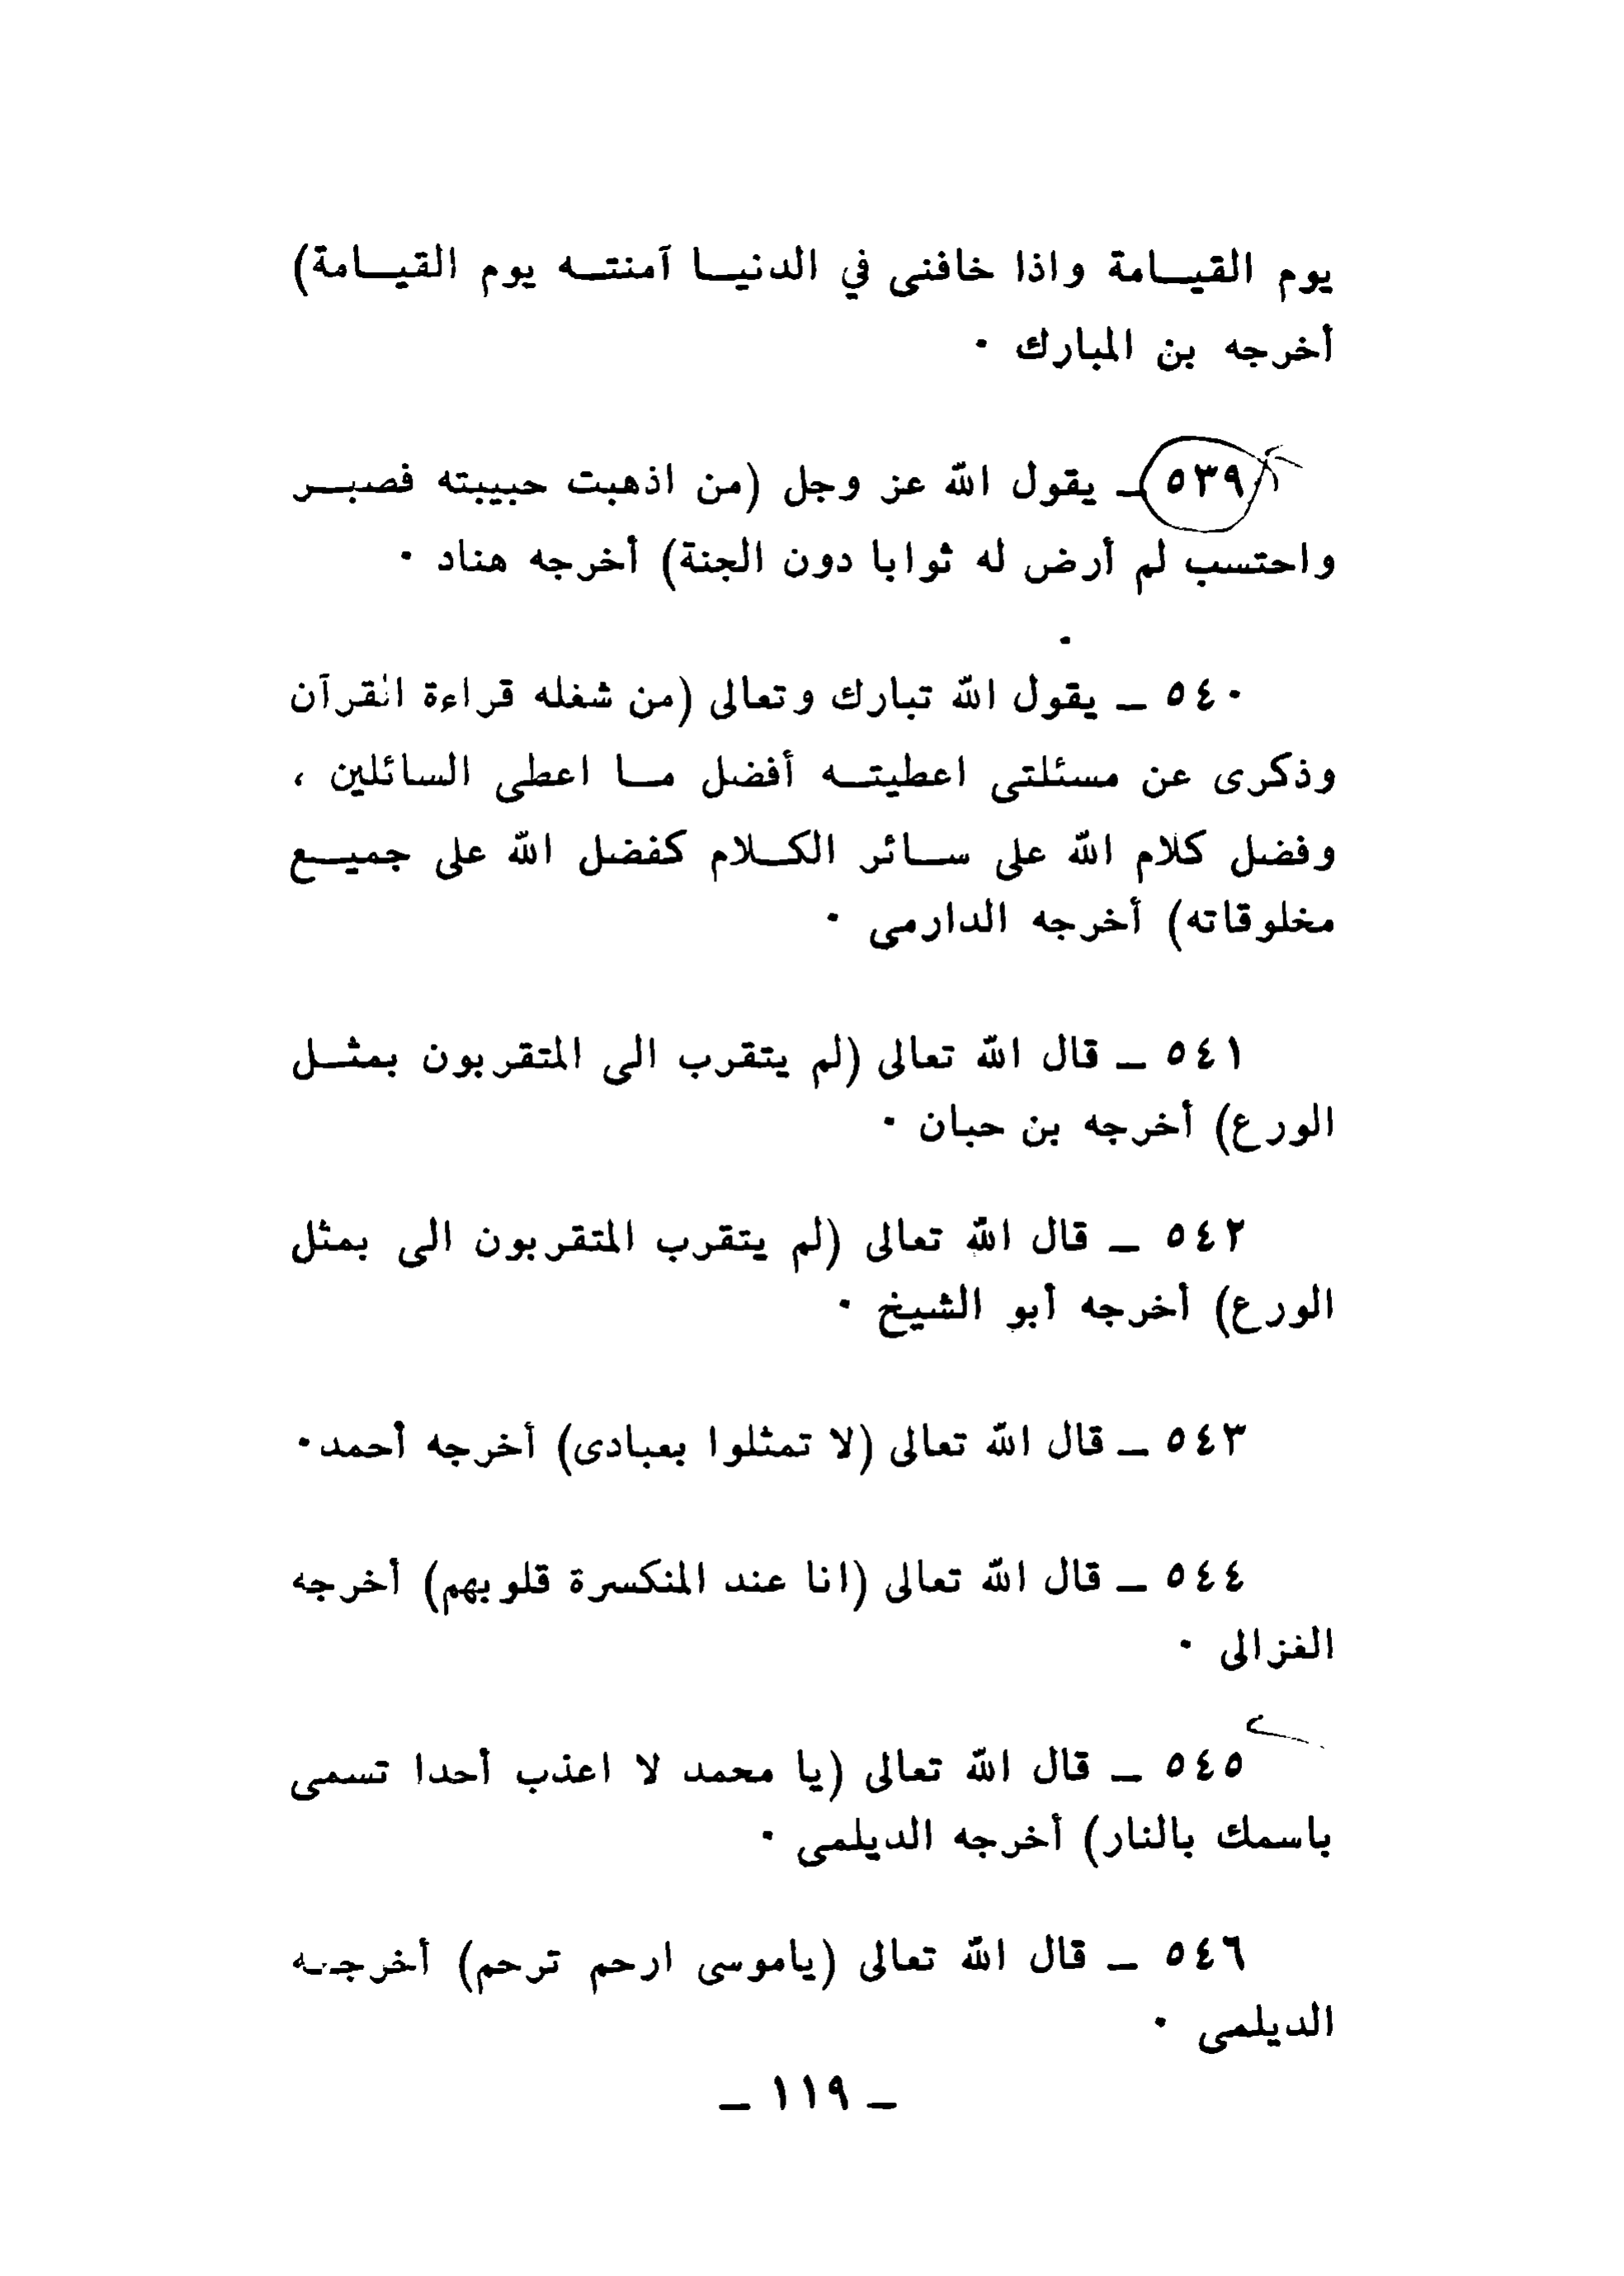 يوم القيامة واذا خافنى في الدنيا آمنته يوم القيامة)
أخرجه بن المبارك ·
٥٣٩ ـ يقول الله عز وجل (من اذهبت حبيبته فصبر
واحتسب لم أرض له ثوابا دون الجنة) أخرجه هناد ·
٥٤٠ ـ يقول الله تبارك وتعالى (من شغله قراءة القرآن
وذكرى عن مسئلتى اعطيته أفضل ما اعطى السائلين ،
وفضل كلام الله على سائر الكلام كفضل الله على جميع
مخلوقاته) أخرجه الدارمى ·
٥٤١ ـ قال الله تعالى (لم يتقرب الى المتقربون بمثل
الورع) أخرجه بن حبان ·
٥٤٢ ـ قال الله تعالى (لم يتقرب المتقربون الى بمثل
الورع) أخرجه أبو الشيخ ·
٥٤٣ ـ قال الله تعالى (لا تمثلوا بعبادى) أخرجه أحمد ·
٥٤٤ ـ قال الله تعالى (انا عند المنكسرة قلوبهم) أخرجه
الغزالى ·
٥٤٥ ـ قال الله تعالى (يا محمد لا اعذب أحدا تسمى
باسمك بالنار) أخرجه الديلمى ·
٥٤٦ ـ قال الله تعالى (ياموسى ارحم ترحم) أخرجه
الديلمى ·
ـ ١١٩ ـ